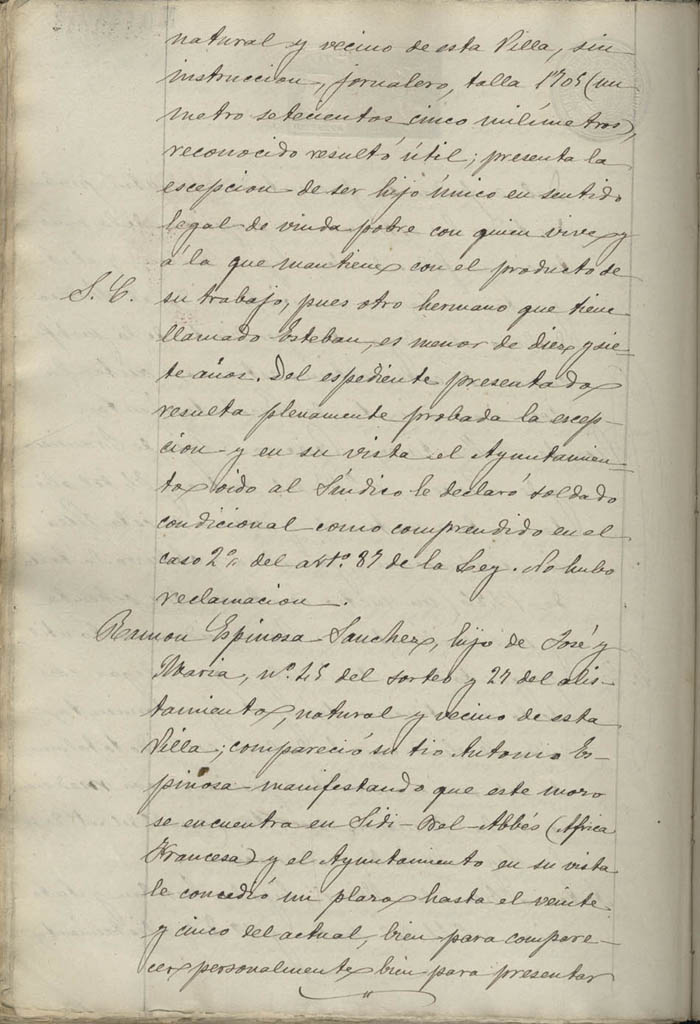 natural y vecino de esta Villa, sin
instruccion, jornalero, talla 1'705 (un
metro setecientos cinco milímetros),
reconocido resultó útil; presenta la
escepcion de ser hijo único en sentido
legal de viuda pobre con quien vive y
á la que mantiene con el producto de
S. C. su trabajo, pues otro hermano que tiene
llamado Esteban, es menor de diez y sie-
te años. Del espediente presentado
resulta plenamente probada la escep-
cion y en su vista el Ayuntamien-
to oido al Síndico le declaró soldado
condicional como comprendido en el
caso 2º del artº 87 de la Ley. No hubo
reclamacion.
Ramon Espinosa Sanchez, hijo de José y
Maria, nº 45 del sorteo y 27 del alis-
tamiento, natural y vecino de esta
Villa; compareció su tio Antonio Es-
pinosa manifestando que este mozo
se encuentra en Sidi-Bel-Abbés (Africa
Francesa) y el Ayuntamiento en su vista
le concedió un plazo hasta el veinte
y cinco del actual, bien para compare-
cer personalmente bien para presentar